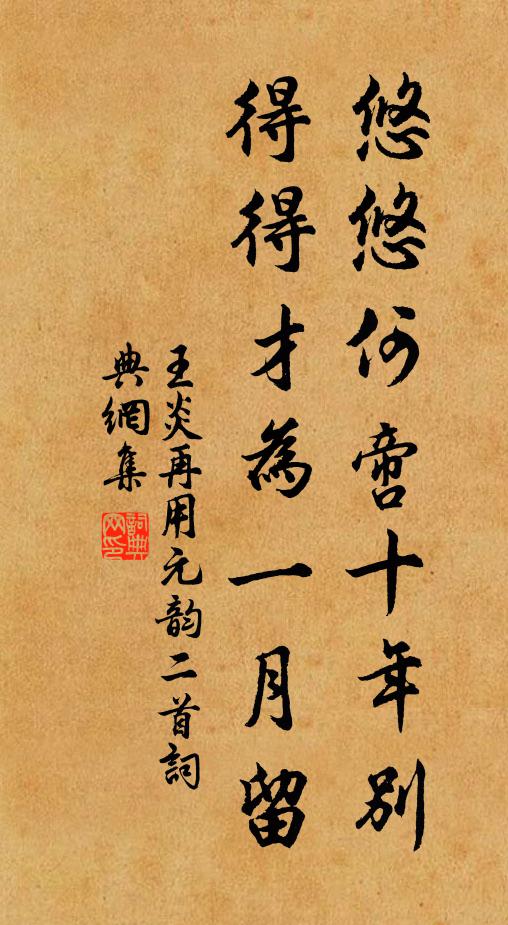 悠悠何啻十年別
得得才為一月留
王炎再用元韵二首詞
典網集
詞典网印